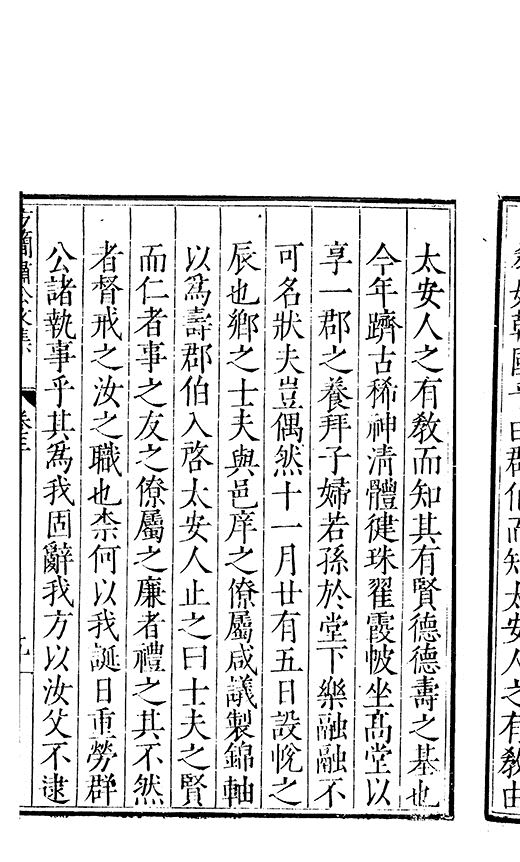 郡伯而知太安人之有敎由
太安人之有敎而知其有賢德德壽之基也
今年躋古稀神清體徤珠翟霞帔坐髙堂以
享一郡之養拜子婦若孫於堂下樂融融不
可名狀夫豈偶然十一月廿有五日設帨之
辰也鄉之士夫與邑庠之僚屬咸議製錦軸
以爲壽郡伯入啓太安人止之曰士夫之賢
而仁者事之友之僚屬之廉者禮之其不然
者督戒之汝之職也柰何以我誕日重勞群
公諸執事乎其爲我固辭我方以汝父不逮
方簡肅公文集 卷三